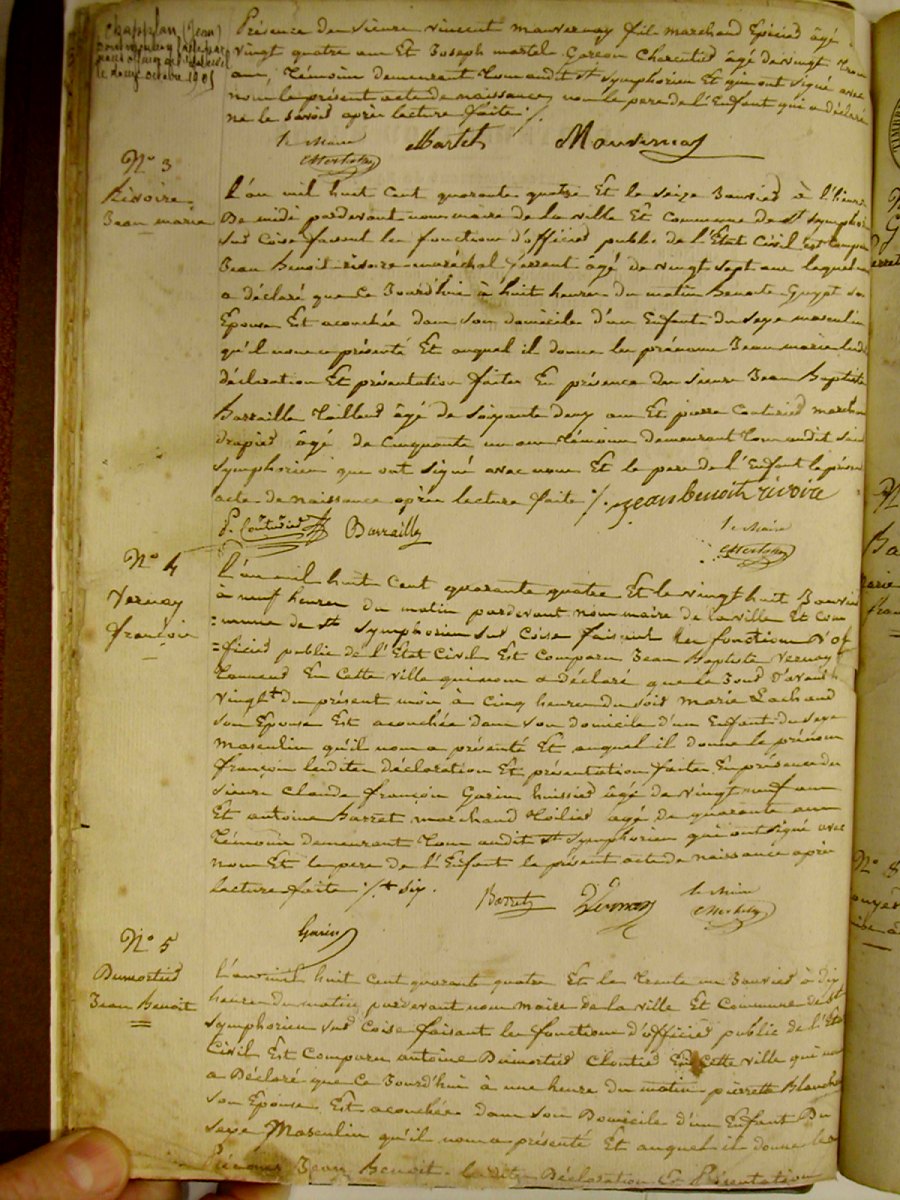 Chapplan (Jean)
le douze octobre 1901
Présence des sieurs vincent mauvernay fils marchand Epicier âgé
vingt quatre ans Et Joseph martel Garçon Charcutier âgé de vingt trois
ans, témoins demeurant tous audit st symphorien Et qui ont signé avec
nous le présent acte de naissance, non le pere de l'Enfant qui a déclaré
ne le savoir après lecture faite ./.
le Maire
Martel Mauvernay
N° 3
Rivoire
Jean marie
L'an mil huit cent quarante quatre Et le seize Janvier à l'heure
De midi pardevant nous maire de la ville Et Commune de st symphorien
sur Coise faisant les fonctions d'officier public de l'Etat Civil est comparu
Jean Benoit rivoire maréchal ferrant âgé de vingt sept ans lequel nous
a déclaré que Ce Jourd'hui à huit heures du matin Benoite Guyot son
Epouse Est acouchée dans son domicile d'un Enfant du sexe masculin
qu'il nous a présenté Et auquel il donne les prénoms Jean marie lesdites
déclaration Et présentation faites En présence des sieurs Jean Baptiste
Barraille tailleur âgé de soixante deux ans Et pierre Couturier marchand
drapier âgé de Cinquante un ans témoins demeurant tous audit saint
symphorien qui ont signé avec nous Et le pere de l'Enfant le présent
acte de naissance après lecture faite ./. Jean Benoit rivoire
p. Couturier Barrailly
le Maire
N° 4
Vernay
françois
L'an mil huit Cent quarante quatre Et le vingt huit Janvier
à neuf heures du matin pardevant nous maire de la ville Et Com
=mune de st symphorien sur Coise faisant les fonctions d'of
=ficier public de l'Etat Civil Est Comparu Jean Baptiste Vernay
tanneur En Cette ville qui nous a déclaré que le Jour d'avant
Vingt du présent mois à Cinq heures du soir marie Lachand
son Epouse Est acouchée dans son domicile d'un Enfant du sexe
masculin qu'il nous a présenté Et auquel il donne le prénom
françois lesdites déclaration Et présentation faites En présence des
sieurs Claude françois Garin huissier âgé de vingt neuf ans
Et antoine Barret marchand toilier agé de quarante ans
témoins demeurant tous audit st symphorien qui ont signé avec
nous Et le pere de l'Enfant le présent acte de naissance après
lecture faite ./. six.
Barret Vernay le Maire
Garin
N° 5
Dumortier
Jean Benoit
L'an mil huit cent quarante quatre Et le trente un Janvier à dix
heures du matin pardevant nous maire de la ville Et Commune de st
symphorien sur Coise faisant les fonctions d'officier public de l'Etat
Civil Est Comparu antoine Dumortier Cloutier En Cette ville qui nous
a Déclaré que Ce Jourd'hui à une heure du matin pierrette Blanchard
son Epouse Est acouchée dans son Domicile d'un Enfant Du
sexe Masculin qu'il nous a présenté Et auquel il donne les
Prénoms Jean Benoit lesdites Déclaration Et Présentation